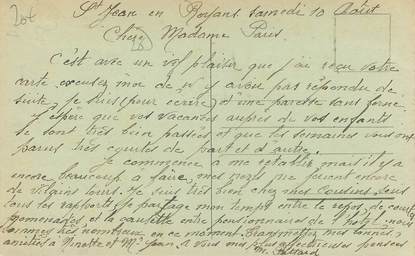 St Jean en Royans samedi 10 Août
Chère Madame Paris.
C'est avec un vif plaisir que j'ai reçu votre
carte, excusez moi de n'y avoir pas répondu de
suite, je suis (pour écrire) d'une paresse sans borne
J'espère que vos vacances auprès de vos enfants
se sont très bien passées et que les semaines vous ont
parus très courtes de part et d'autre.
Je commence à me rétablir mais il y a
encore beaucoup à faire, mes nerfs me jouent encore
de vilains tours. Je suis très bien chez mes cousins sous
tous les rapports, je partage mon temps entre le repos, de courtes
promenades, et la causette entre pensionnaires de l'hôtel, nous
sommes très nombreux en ce moment. Transmettez mes bonnes
amitiés à Ninette et Mr Jean à vous mes plus affectueuses pensées